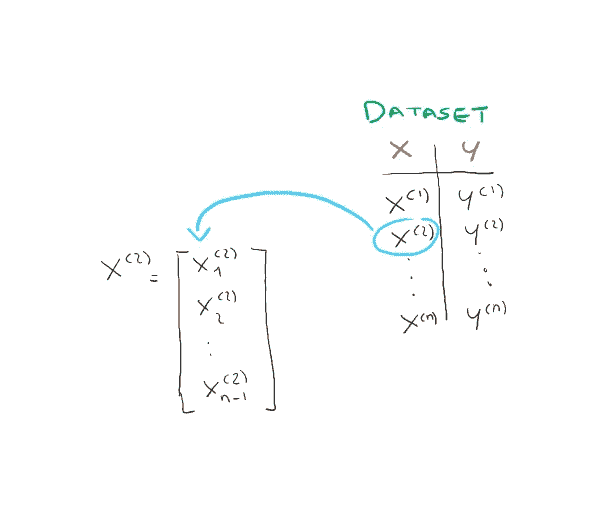 DATASET
X y
X^(1) y^(1)
X^(2) y^(2)
⋮ ⋮
X^(n) y^(n)
X^(2) = [ X_1^(2)
X_2^(2)
⋮
X_{n-1}^(2) ]